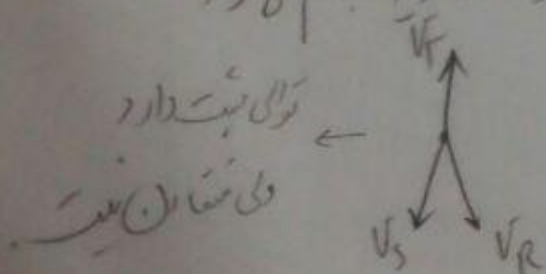 V_T
توالی مثبت دارد ←
ولی متقارن نیست.
V_S
V_R